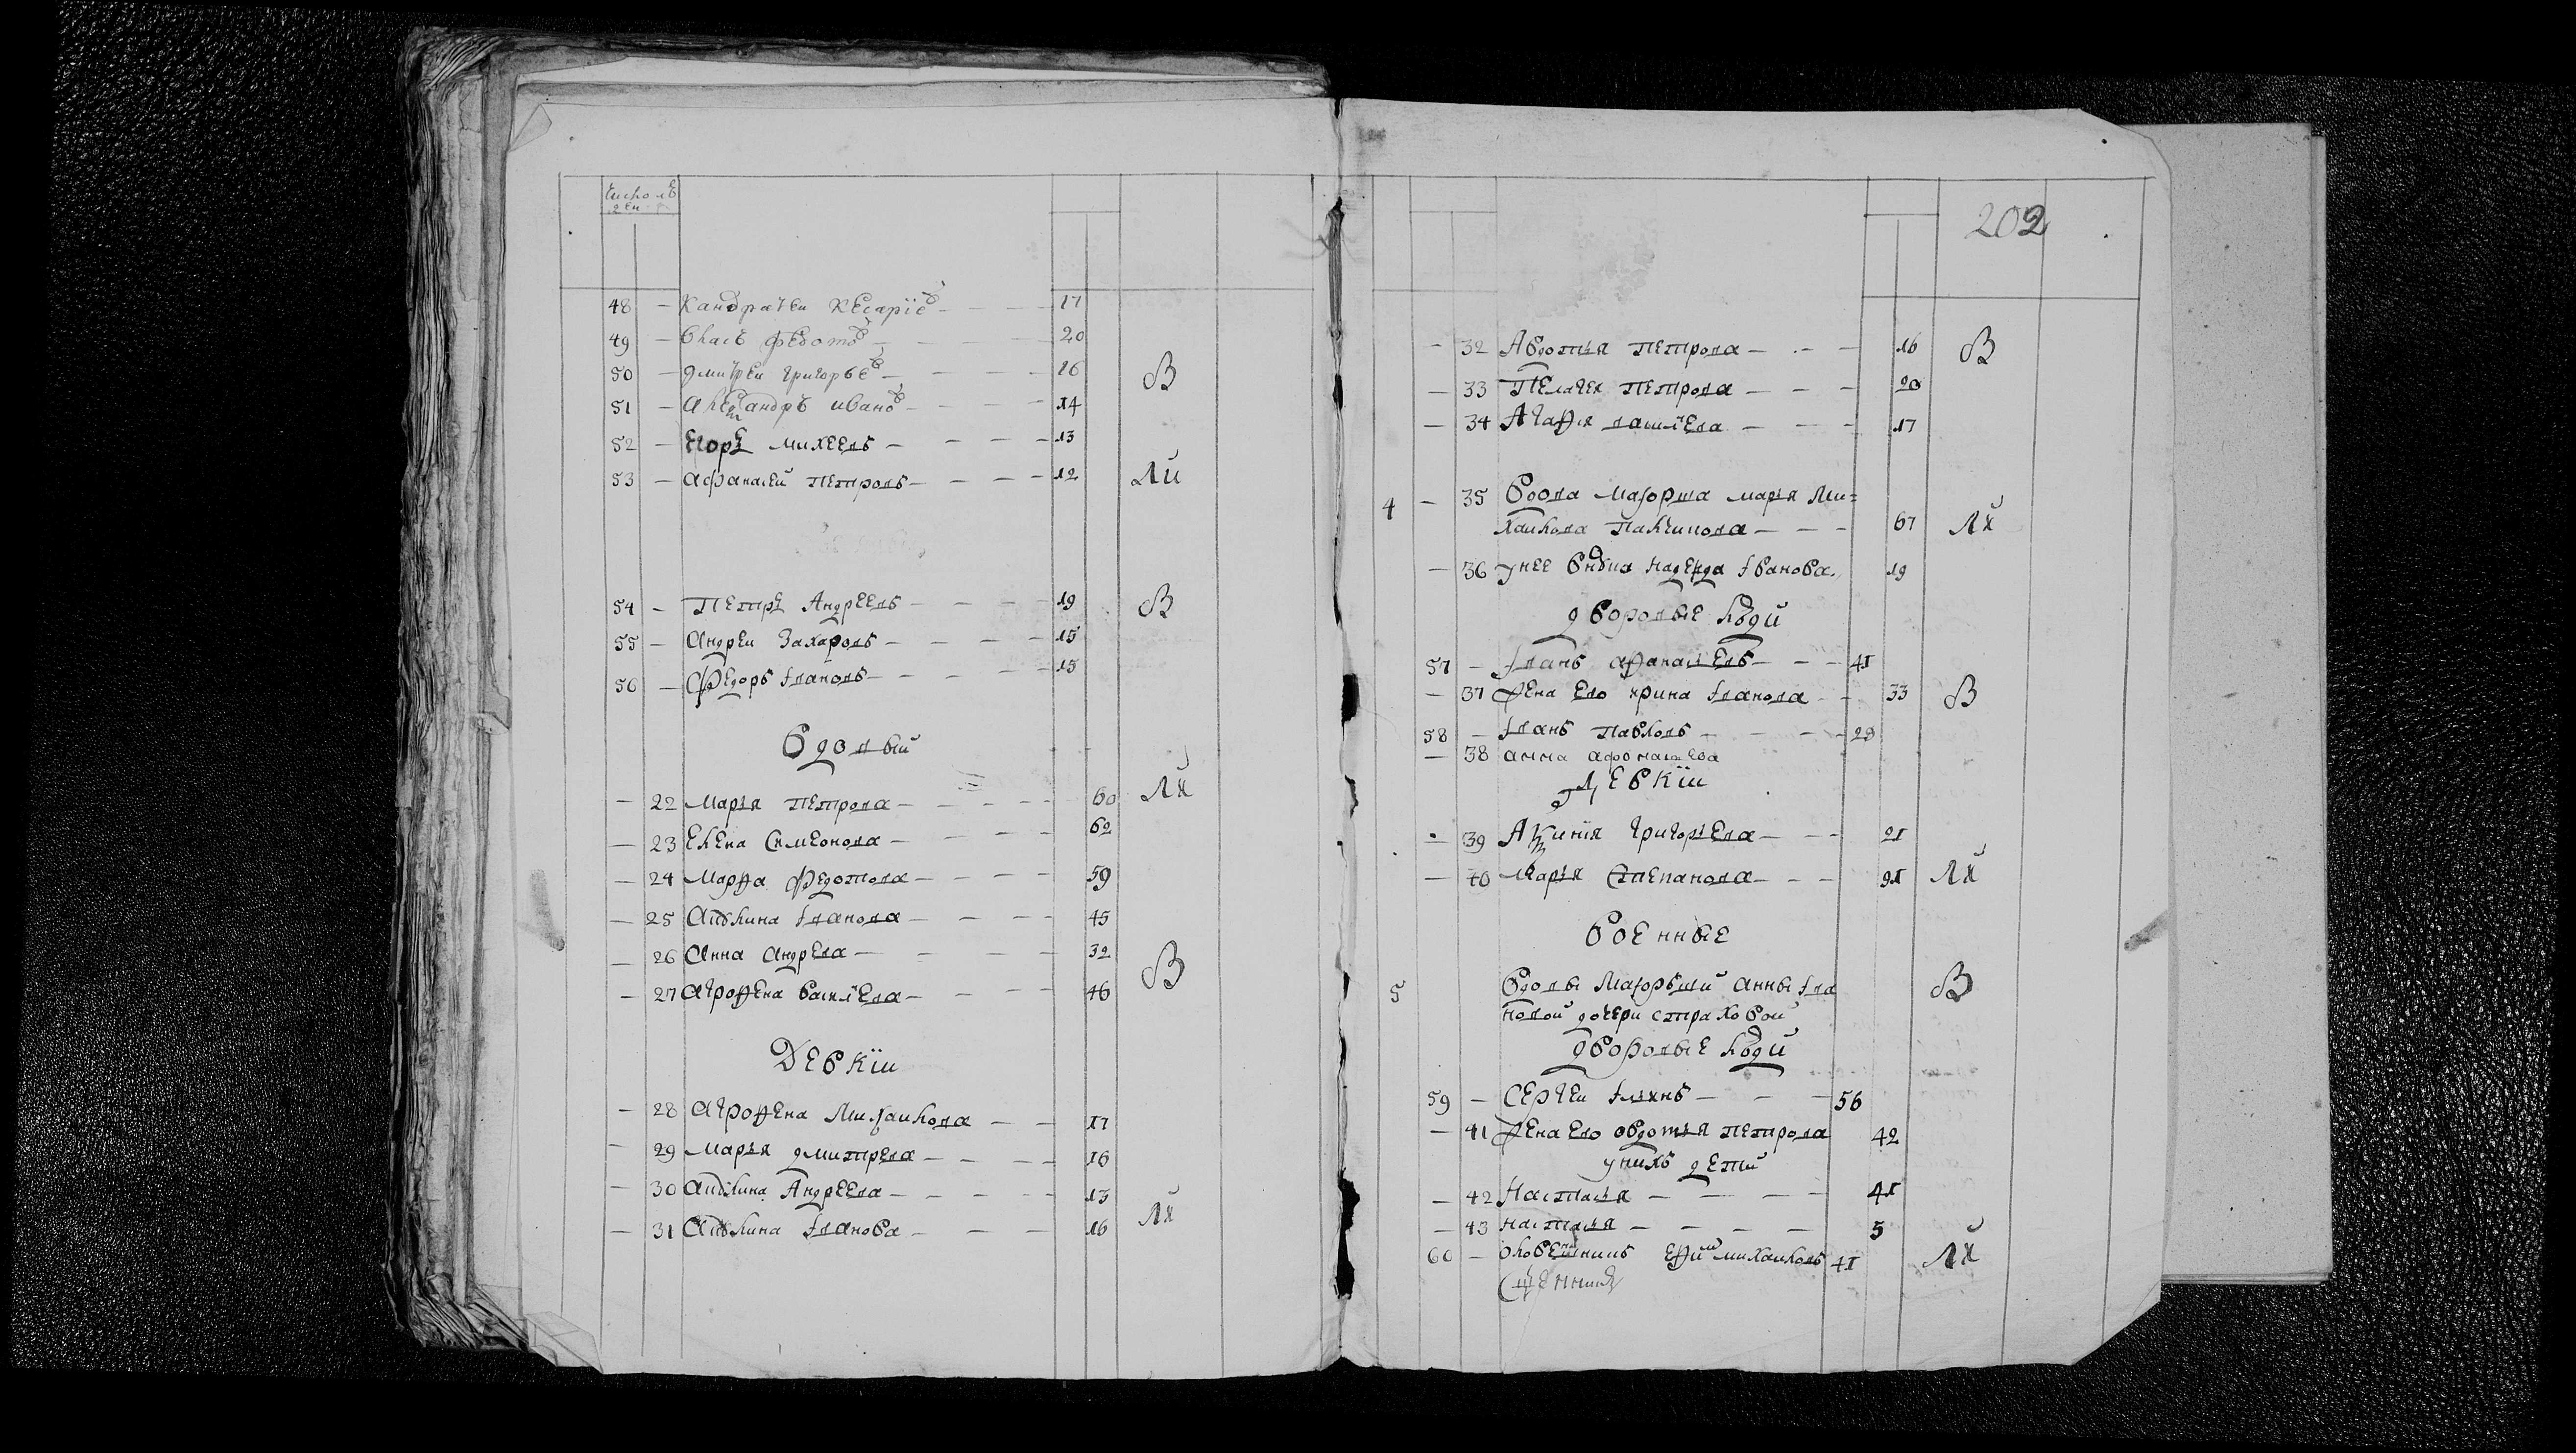 48 — Кандратеи Кесарїевъ — — 17
49 — Власъ Федотовъ — — 20
50 — Дмитреи Григорьевъ — — 16 В
51 — Александръ Ивановъ — — 14
52 — Егоръ Михеевъ — — — 13
53 — Афанасей Петровъ — — — 12 ли
54 — Петръ Андреевъ — — — 19 В
55 — Андреи Захаровъ — — — 15
56 — Федоръ Ивановъ — — — 15
Вдовый
— 22 Марья Петрова — — — 60 лх
— 23 Елена Симеонова — — — 62
— 24 Марфа Федотова — — — 59
— 25 Акулина Иванова — — — 45
— 26 Анна Андрева — — — 32 В
— 27 Агрофена Васильева — — — 46
Девкїи
— 28 Агрофена Михаилова — — 17
— 29 Марья Дмитрева — — — 16
— 30 Акулина Андреева — — — 13
— 31 Акулина Иванова — — — 16 лх
202
— 32 Авдотья Петрова — — — 16 В
— 33 Пелагея Петрова — — — 20
— 34 Агафья Васильева — — — 17
4 — 35 Вдова маiорша марья Ми=
хаилова — — 67 лх
— 36 у нее внука Надежда Иванова 19
дворовые люди
57 — Иванъ Афанасьевъ — — 41
— 37 жена ево Ирина Иванова — 33 В
58 — Иванъ Павловъ — — — 29
— 38 анна афонасьева
Девкїи
— 39 Аксинїя Григорьева — — 21
— 40 Марья Степанова — — — 21 лх
Военные
5 Вдовы Маiорьши Анны Ива В
новой дочери Страховой
дворовые люди
59 — Сергеи Ильинъ — — 56
— 41 жена ево овдотья Петрова 42
у нихъ дети
— 42 Настасья — — — 11
— 43 настасья — — — 5
60 — Ефимъ михаиловъ 41 лх